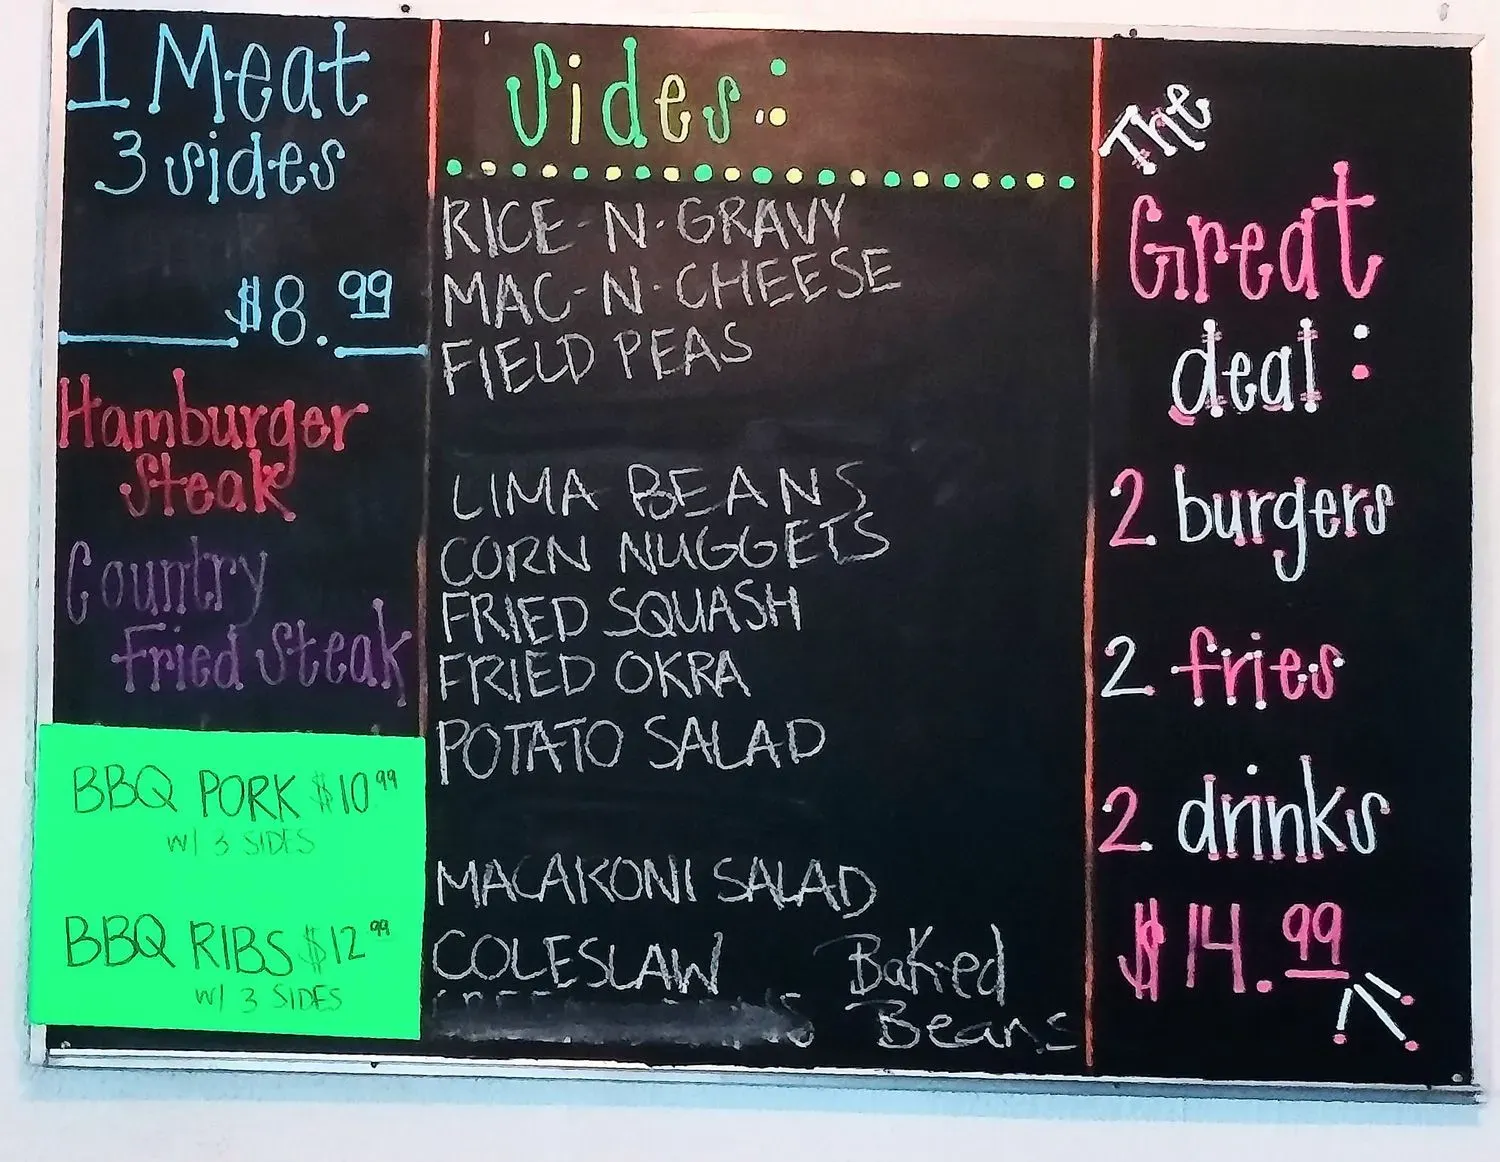 1 Meat
3 sides
$8.99
Hamburger
Steak
Country
Fried Steak
BBQ PORK $10.99
W/ 3 SIDES
BBQ RIBS $12.99
W/ 3 SIDES
Sides:
RICE-N-GRAVY
MAC-N-CHEESE
FIELD PEAS
LIMA BEANS
CORN NUGGETS
FRIED SQUASH
FRIED OKRA
POTATO SALAD
MACARONI SALAD
COLESLAW
Baked
Beans
The
Great
deal:
2 burgers
2 fries
2 drinks
$14.99